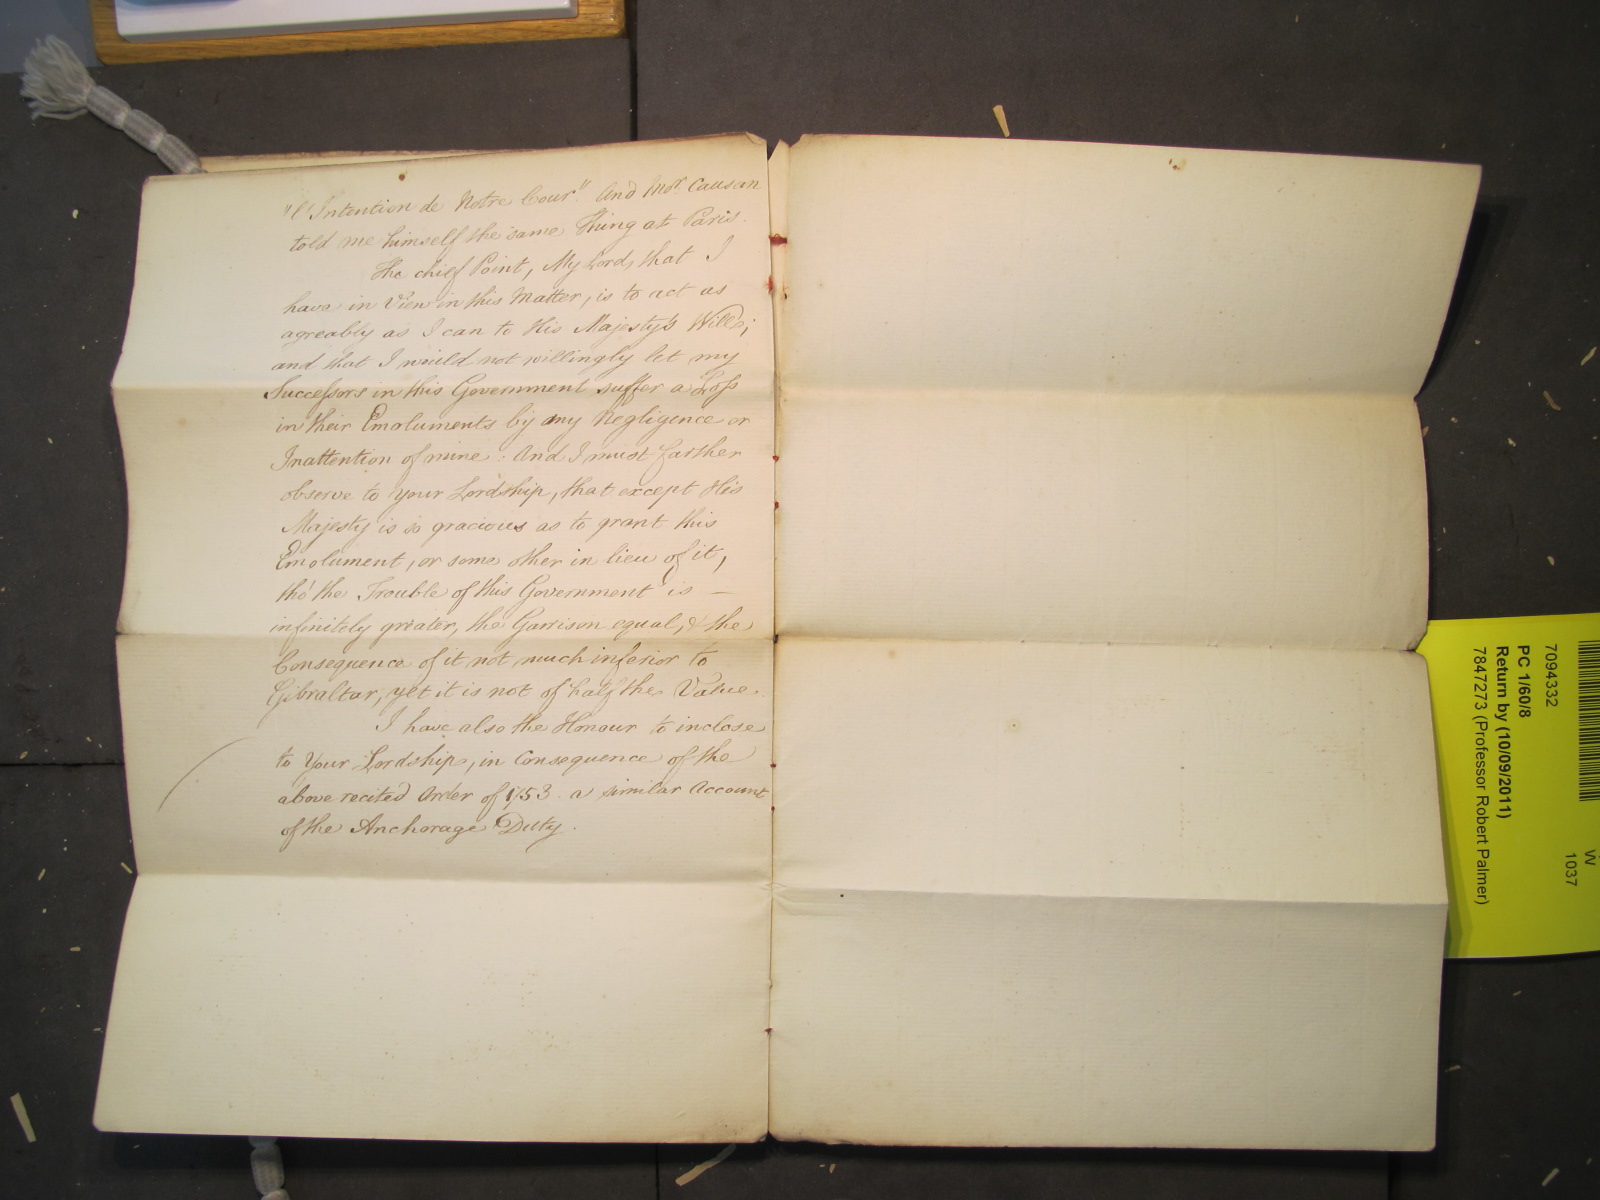 "l'Intention de Notre Cour". And Mor. Causan
told me himself the same Thing at Paris.
The chief Point, My Lord, that I
have in View in this Matter, is to act as
agreably as I can to His Majesty's Will;
and that I would not willingly let my
Successors in this Government suffer a Loss
in their Emoluments by any Negligence or
Inattention of mine. And I must farther
observe to your Lordship, that except His
Majesty is so gracious as to grant this
Emolument, or some other in lieu of it,
tho' the Trouble of this Government is —
infinitely greater, the Garrison equal, & the
Consequence of it not much inferior to
Gibraltar, yet it is not of half the Value.
I have also the Honour to inclose
to Your Lordship, in Consequence of the
above recited Order of 1753. a similar Account
of the Anchorage Duty.
W
1037
7094332
PC 1/60/8
Return by (10/09/2011)
7847273 (Professor Robert Palmer)